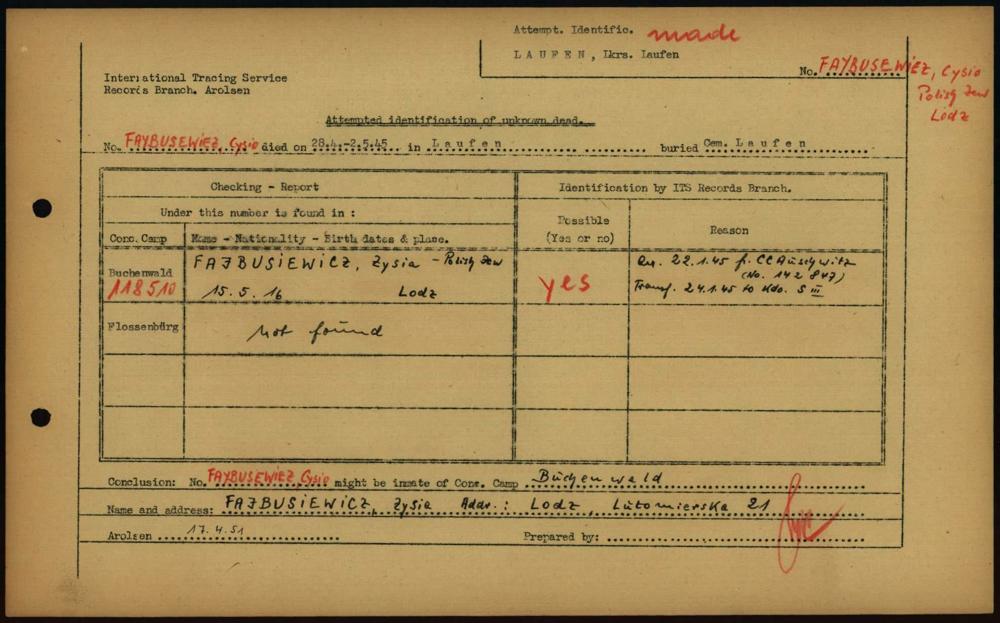 Attempt. Identific. made
LAUFEN, Lkrs. Laufen
International Tracing Service
Records Branch. Arolsen
No. FAYBUSEWIEZ, Cysio
Polish Jew
Lodz
Attempted identification of unknown dead.
No. FAYBUSEWIEZ, Cysio died on 28.4.-2.5.45 in Laufen buried Cem. Laufen
Checking - Report
Identification by ITS Records Branch.
Under this number is found in :
Possible
(Yes or no)
Reason
Conc. Camp
Name - Nationality - Birth dates & place.
Buchenwald
118510
FAJBUSIEWICZ, Zysia - Polish Jew
15.5.16 Lodz
yes
22.1.45 f. CC Auschwitz
(No. 142 847)
Transf. 24.1.45 to Kdo. S III
Flossenbürg
not found
Conclusion: No. FAYBUSEWIEZ, Cysio might be inmate of Conc. Camp Buchenwald
Name and address: FAJBUSIEWICZ, Zysia Addr.: Lodz, Lutomierska 21
Arolsen 17.4.51
Prepared by: